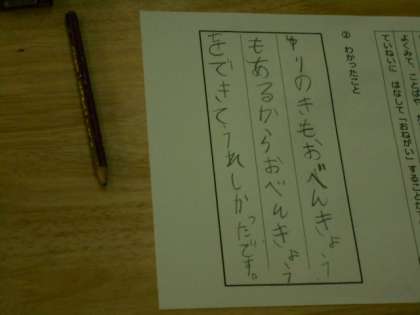 よくみて、ことば
ていねいに はなして「おねがい」することが
② わかったこと
ゆりのきもおべんきょう
もあるからおべんきょう
をできてうれしかったです。